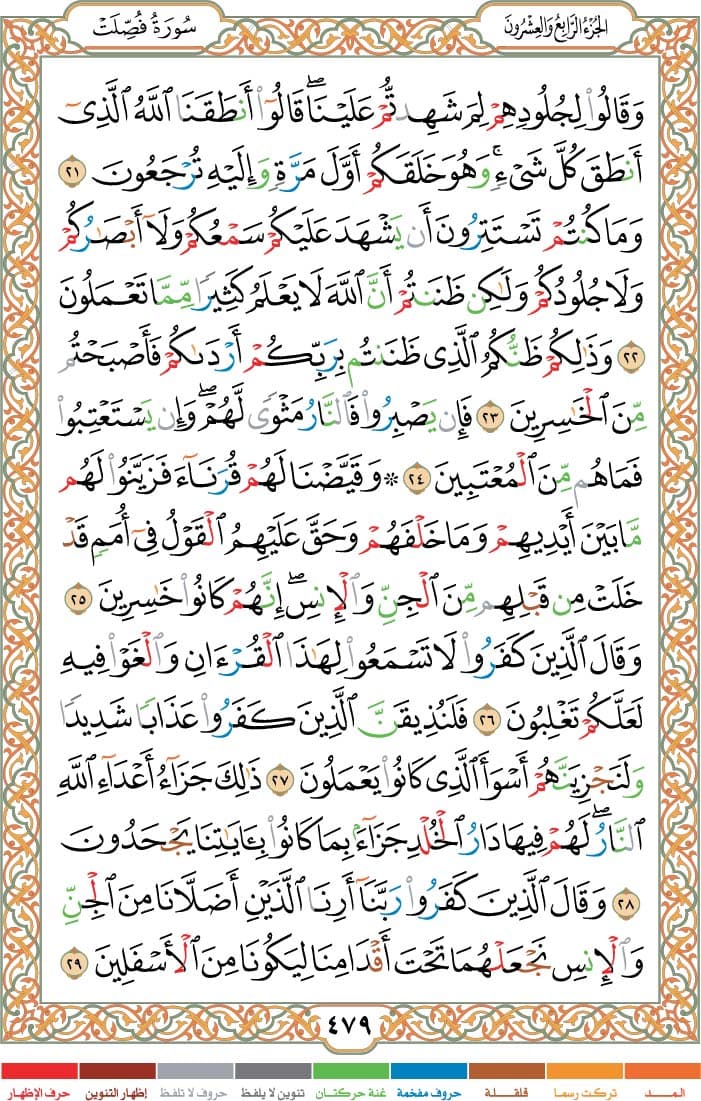 الجُزْءُ الرَّابِعُ وَالعِشْرُونَ
سُورَةُ فُصِّلَتْ
وَقَالُوا۟ لِجُلُودِهِمْ لِمَ شَهِدتُّمْ عَلَيْنَا ۖ قَالُوٓا۟ أَنطَقَنَا ٱللَّهُ ٱلَّذِىٓ
أَنطَقَ كُلَّ شَىْءٍ ۚ وَهُوَ خَلَقَكُمْ أَوَّلَ مَرَّةٍ وَإِلَيْهِ تُرْجَعُونَ ٢١
وَمَا كُنتُمْ تَسْتَتِرُونَ أَن يَشْهَدَ عَلَيْكُمْ سَمْعُكُمْ وَلَآ أَبْصَـٰرُكُمْ
وَلَا جُلُودُكُمْ وَلَـٰكِن ظَنَنتُمْ أَنَّ ٱللَّهَ لَا يَعْلَمُ كَثِيرًا مِّمَّا تَعْمَلُونَ
٢٢ وَذَٰلِكُمْ ظَنُّكُمُ ٱلَّذِى ظَنَنتُم بِرَبِّكُمْ أَرْدَىٰكُمْ فَأَصْبَحْتُم
مِّنَ ٱلْخَـٰسِرِينَ ٢٣ فَإِن يَصْبِرُوا۟ فَٱلنَّارُ مَثْوًى لَّهُمْ ۖ وَإِن يَسْتَعْتِبُوا۟
فَمَا هُم مِّنَ ٱلْمُعْتَبِينَ ٢٤ ۞ وَقَيَّضْنَا لَهُمْ قُرَنَآءَ فَزَيَّنُوا۟ لَهُم
مَّا بَيْنَ أَيْدِيهِمْ وَمَا خَلْفَهُمْ وَحَقَّ عَلَيْهِمُ ٱلْقَوْلُ فِىٓ أُمَمٍ قَدْ
خَلَتْ مِن قَبْلِهِم مِّنَ ٱلْجِنِّ وَٱلْإِنسِ ۖ إِنَّهُمْ كَانُوا۟ خَـٰسِرِينَ ٢٥
وَقَالَ ٱلَّذِينَ كَفَرُوا۟ لَا تَسْمَعُوا۟ لِهَـٰذَا ٱلْقُرْءَانِ وَٱلْغَوْا۟ فِيهِ
لَعَلَّكُمْ تَغْلِبُونَ ٢٦ فَلَنُذِيقَنَّ ٱلَّذِينَ كَفَرُوا۟ عَذَابًا شَدِيدًا
وَلَنَجْزِيَنَّهُمْ أَسْوَأَ ٱلَّذِى كَانُوا۟ يَعْمَلُونَ ٢٧ ذَٰلِكَ جَزَآءُ أَعْدَآءِ ٱللَّهِ
ٱلنَّارُ ۖ لَهُمْ فِيهَا دَارُ ٱلْخُلْدِ جَزَآءًۢ بِمَا كَانُوا۟ بِـَٔايَـٰتِنَا يَجْحَدُونَ
٢٨ وَقَالَ ٱلَّذِينَ كَفَرُوا۟ رَبَّنَآ أَرِنَا ٱلَّذَيْنِ أَضَلَّانَا مِنَ ٱلْجِنِّ
وَٱلْإِنسِ نَجْعَلْهُمَا تَحْتَ أَقْدَامِنَا لِيَكُونَا مِنَ ٱلْأَسْفَلِينَ ٢٩
٤٧٩
المـــد تركت رسما قلقـلة حروف مفخمة غنة حركتان تنوين لا يلفظ حروف لا تلفظ إظهار التنوين حرف الإظهار